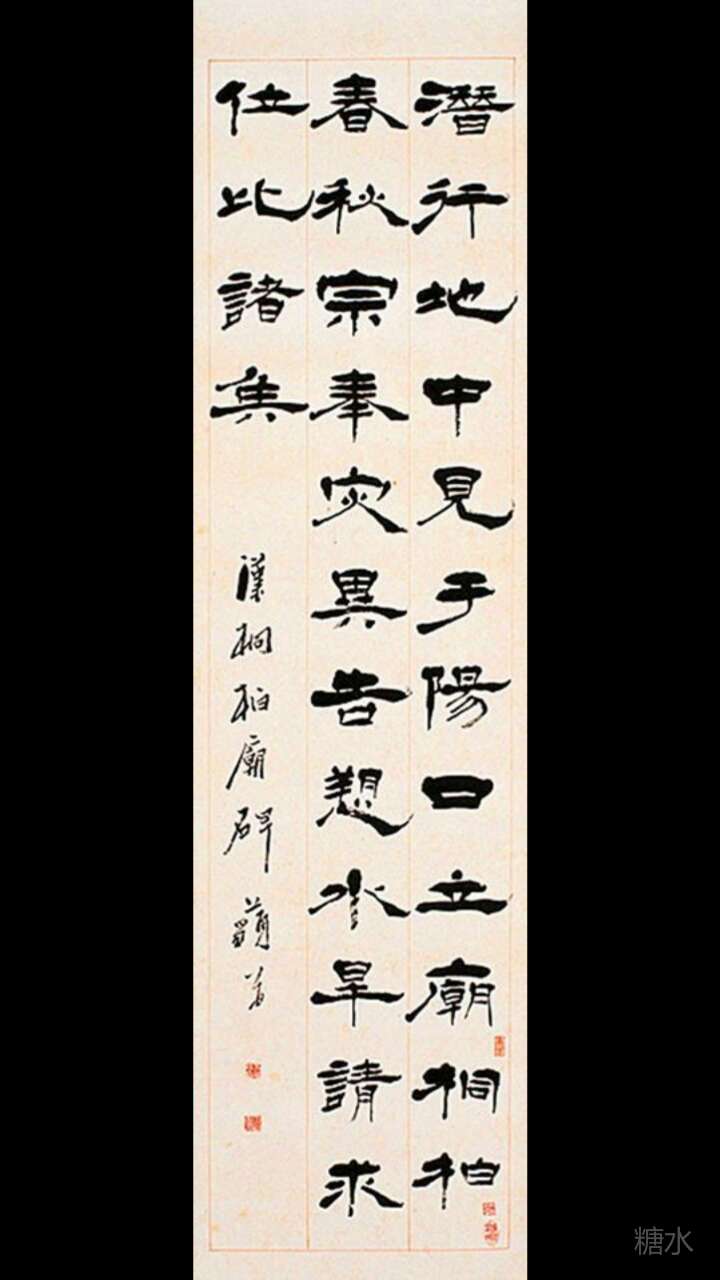 潛行地中見于陽口立廟桐柏
春秋宗奉灾異告愬水旱請求
位比諸
漢桐柏廟碑
糖水